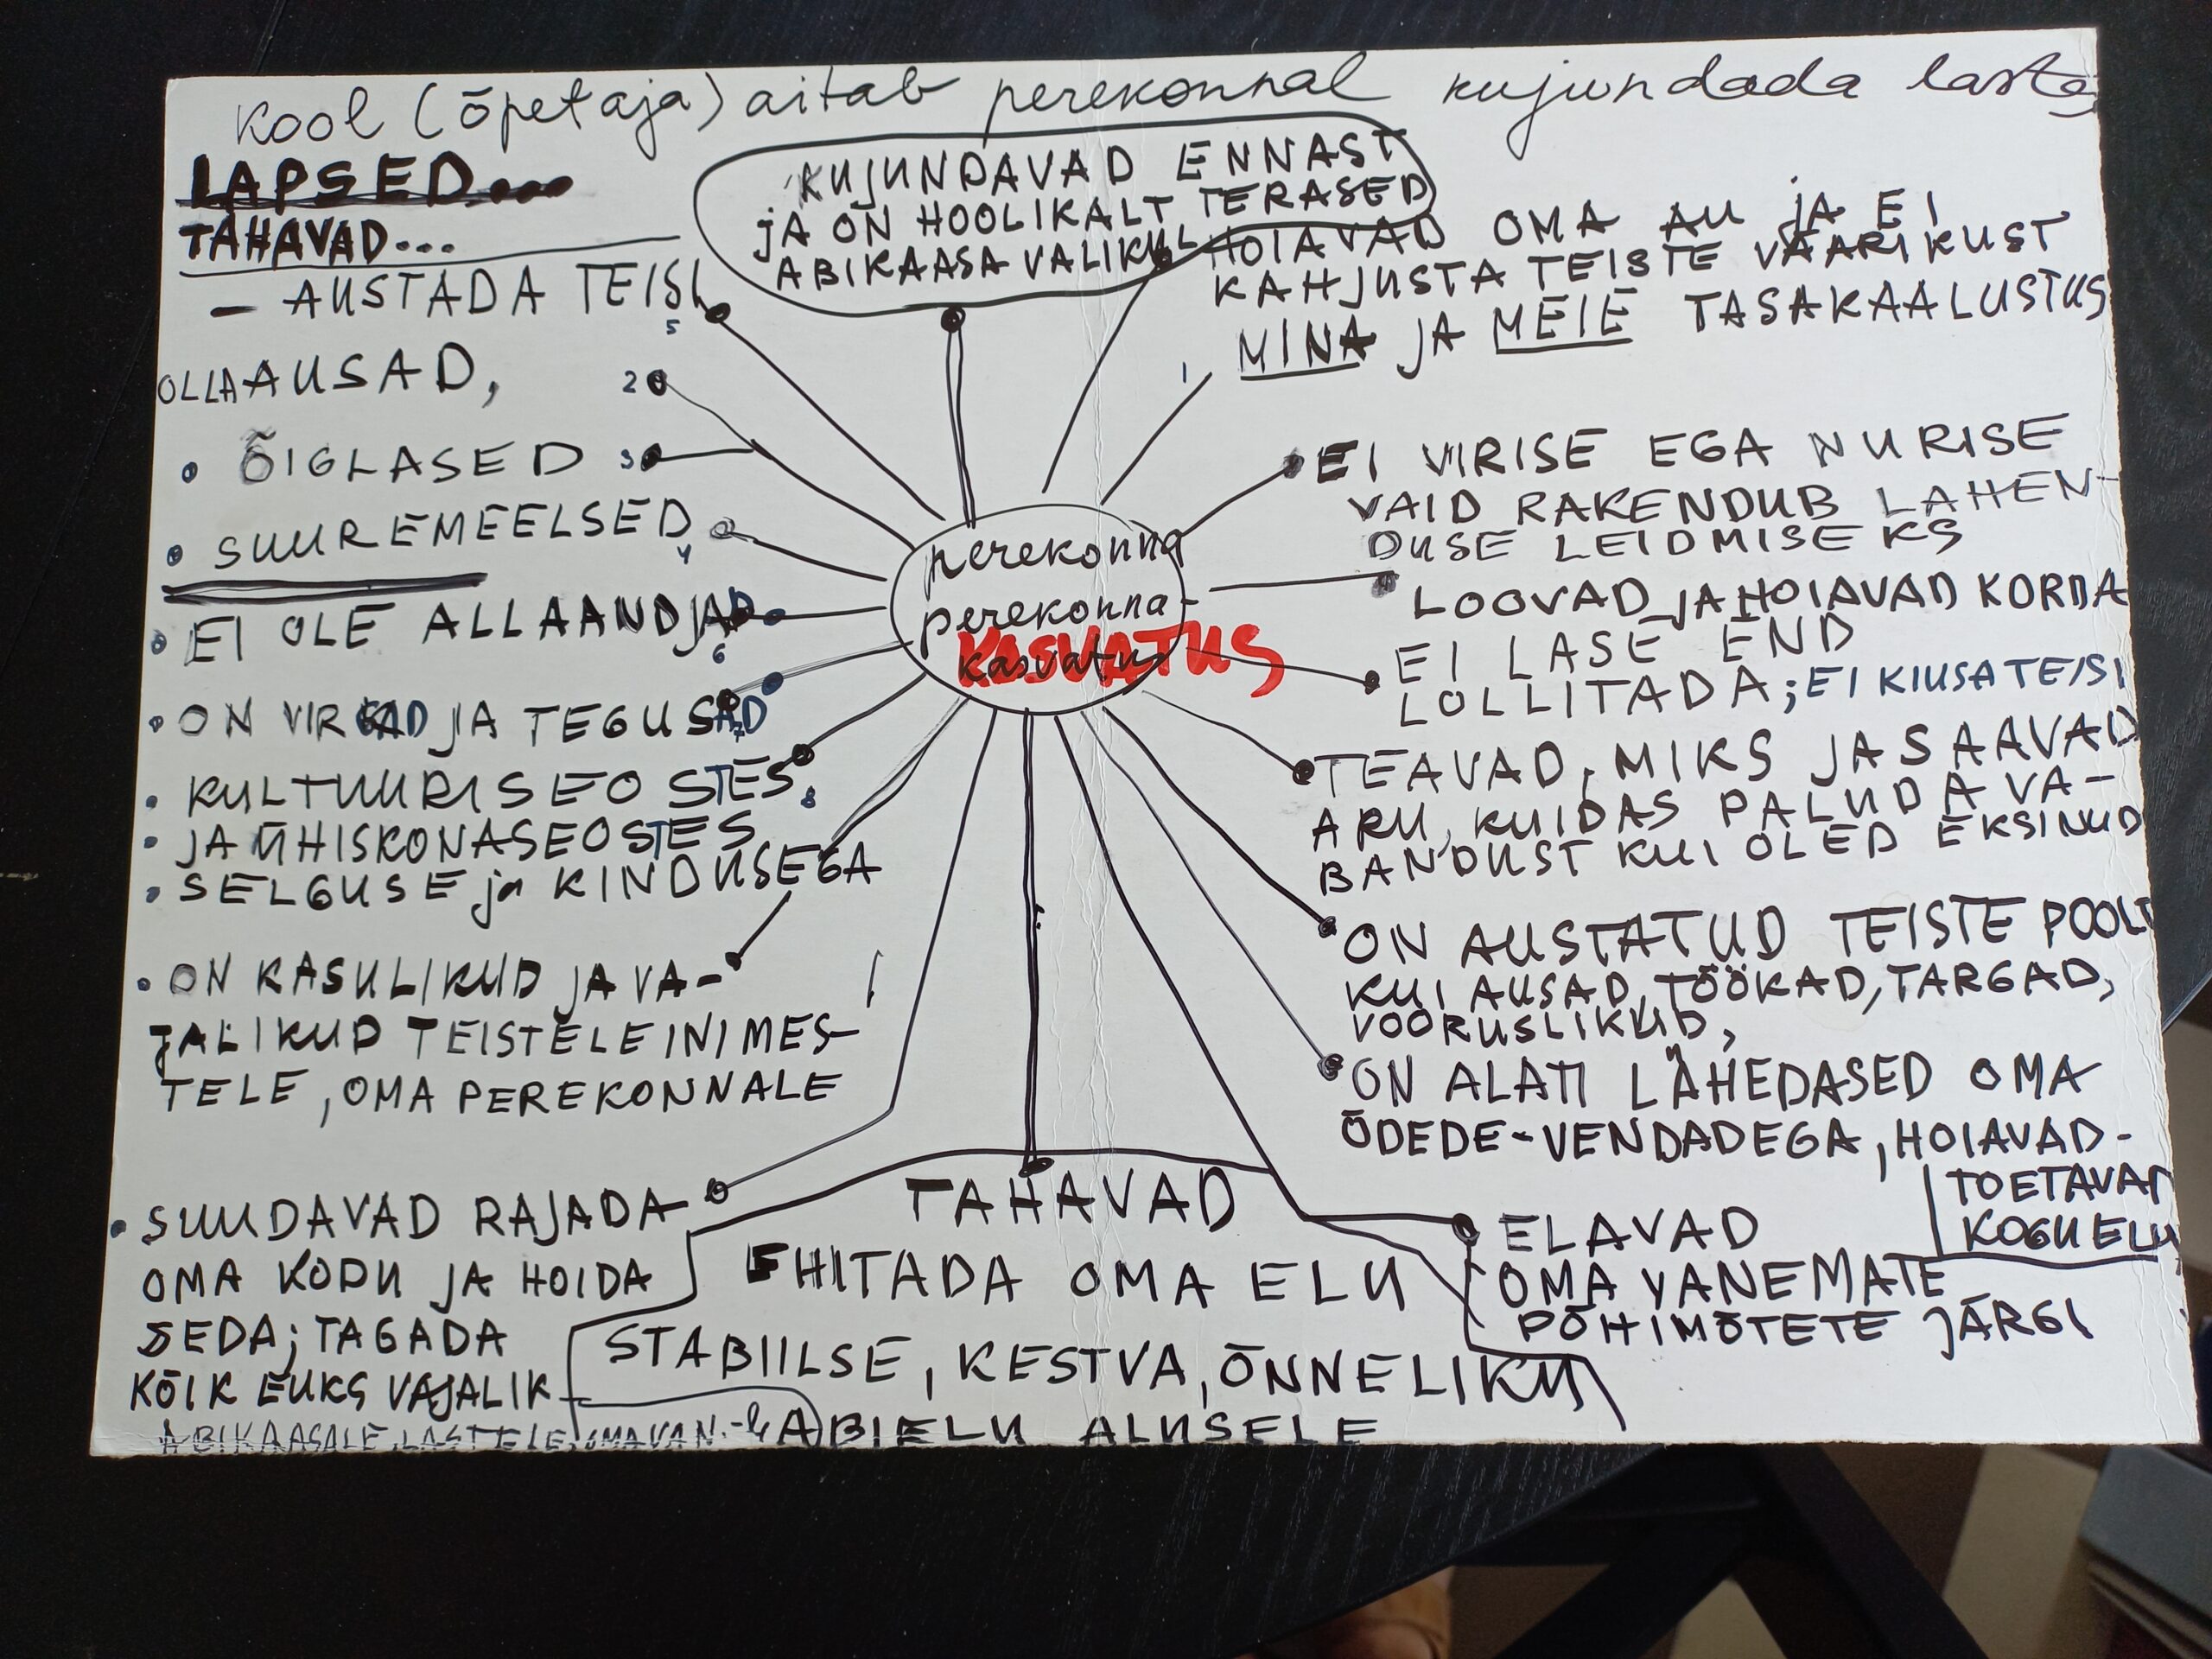 Kool (õpetaja) aitab perekonnal kujundada laste
LAPSED...
TAHAVAD...
– AUSTADA TEISI
5
OLLA AUSAD,
2
• ÕIGLASED
3
• SUUREMEELSED
4
• EI OLE ALLAANDJAD
6
• ON VIRGAD JA TEGUSAD
7
• KULTUURISEOSTES
8
• JA ÜHISKONASEOSTES
• SELGUSE ja KINDUSEGA
• ON KASULIKUD JA VA-
JALIKUD TEISTELE INIMES-
TELE, OMA PEREKONNALE
• SUUDAVAD RAJADA
OMA KODU JA HOIDA
SEDA; TAGADA
KÕIK ELUKS VAJALIK
ABIKAASALE, LASTELE, OMA VAN.-le
KUJUNDAVAD ENNAST
JA ON HOOLIKALT TERASED
ABIKAASA VALIKUL
perekonna
perekonna-
kasvatus
KASVATUS
HOIAVAD OMA AU JA EI
KAHJUSTA TEISTE VÄÄRIKUST
1
MINA JA MEIE TASAKAALUSTUS
EI VIRISE EGA NURISE
VAID RAKENDUB LAHEN-
DUSE LEIDMISEKS
LOOVAD JA HOIAVAD KORDA
EI LASE END
LOLLITADA; EI KIUSA TEISI
TEAVAD, MIKS JA SAAVAD
ARU, KUIDAS PALUDA VA-
BANDUST KUI OLED EKSINUD
ON AUSTATUD TEISTE POOLT
KUI AUSAD, TÖÖKAD, TARGAD,
VOORUSLIKUD,
ON ALATI LÄHEDASED OMA
ÕDEDE-VENDADEGA, HOIAVAD-
TOETAVAD
KOGU ELU
ELAVAD
OMA VANEMATE
PÕHIMÕTETE JÄRGI
TAHAVAD
EHITADA OMA ELU
STABIILSE, KESTVA, ÕNNELIKU
ABIELU ALUSELE